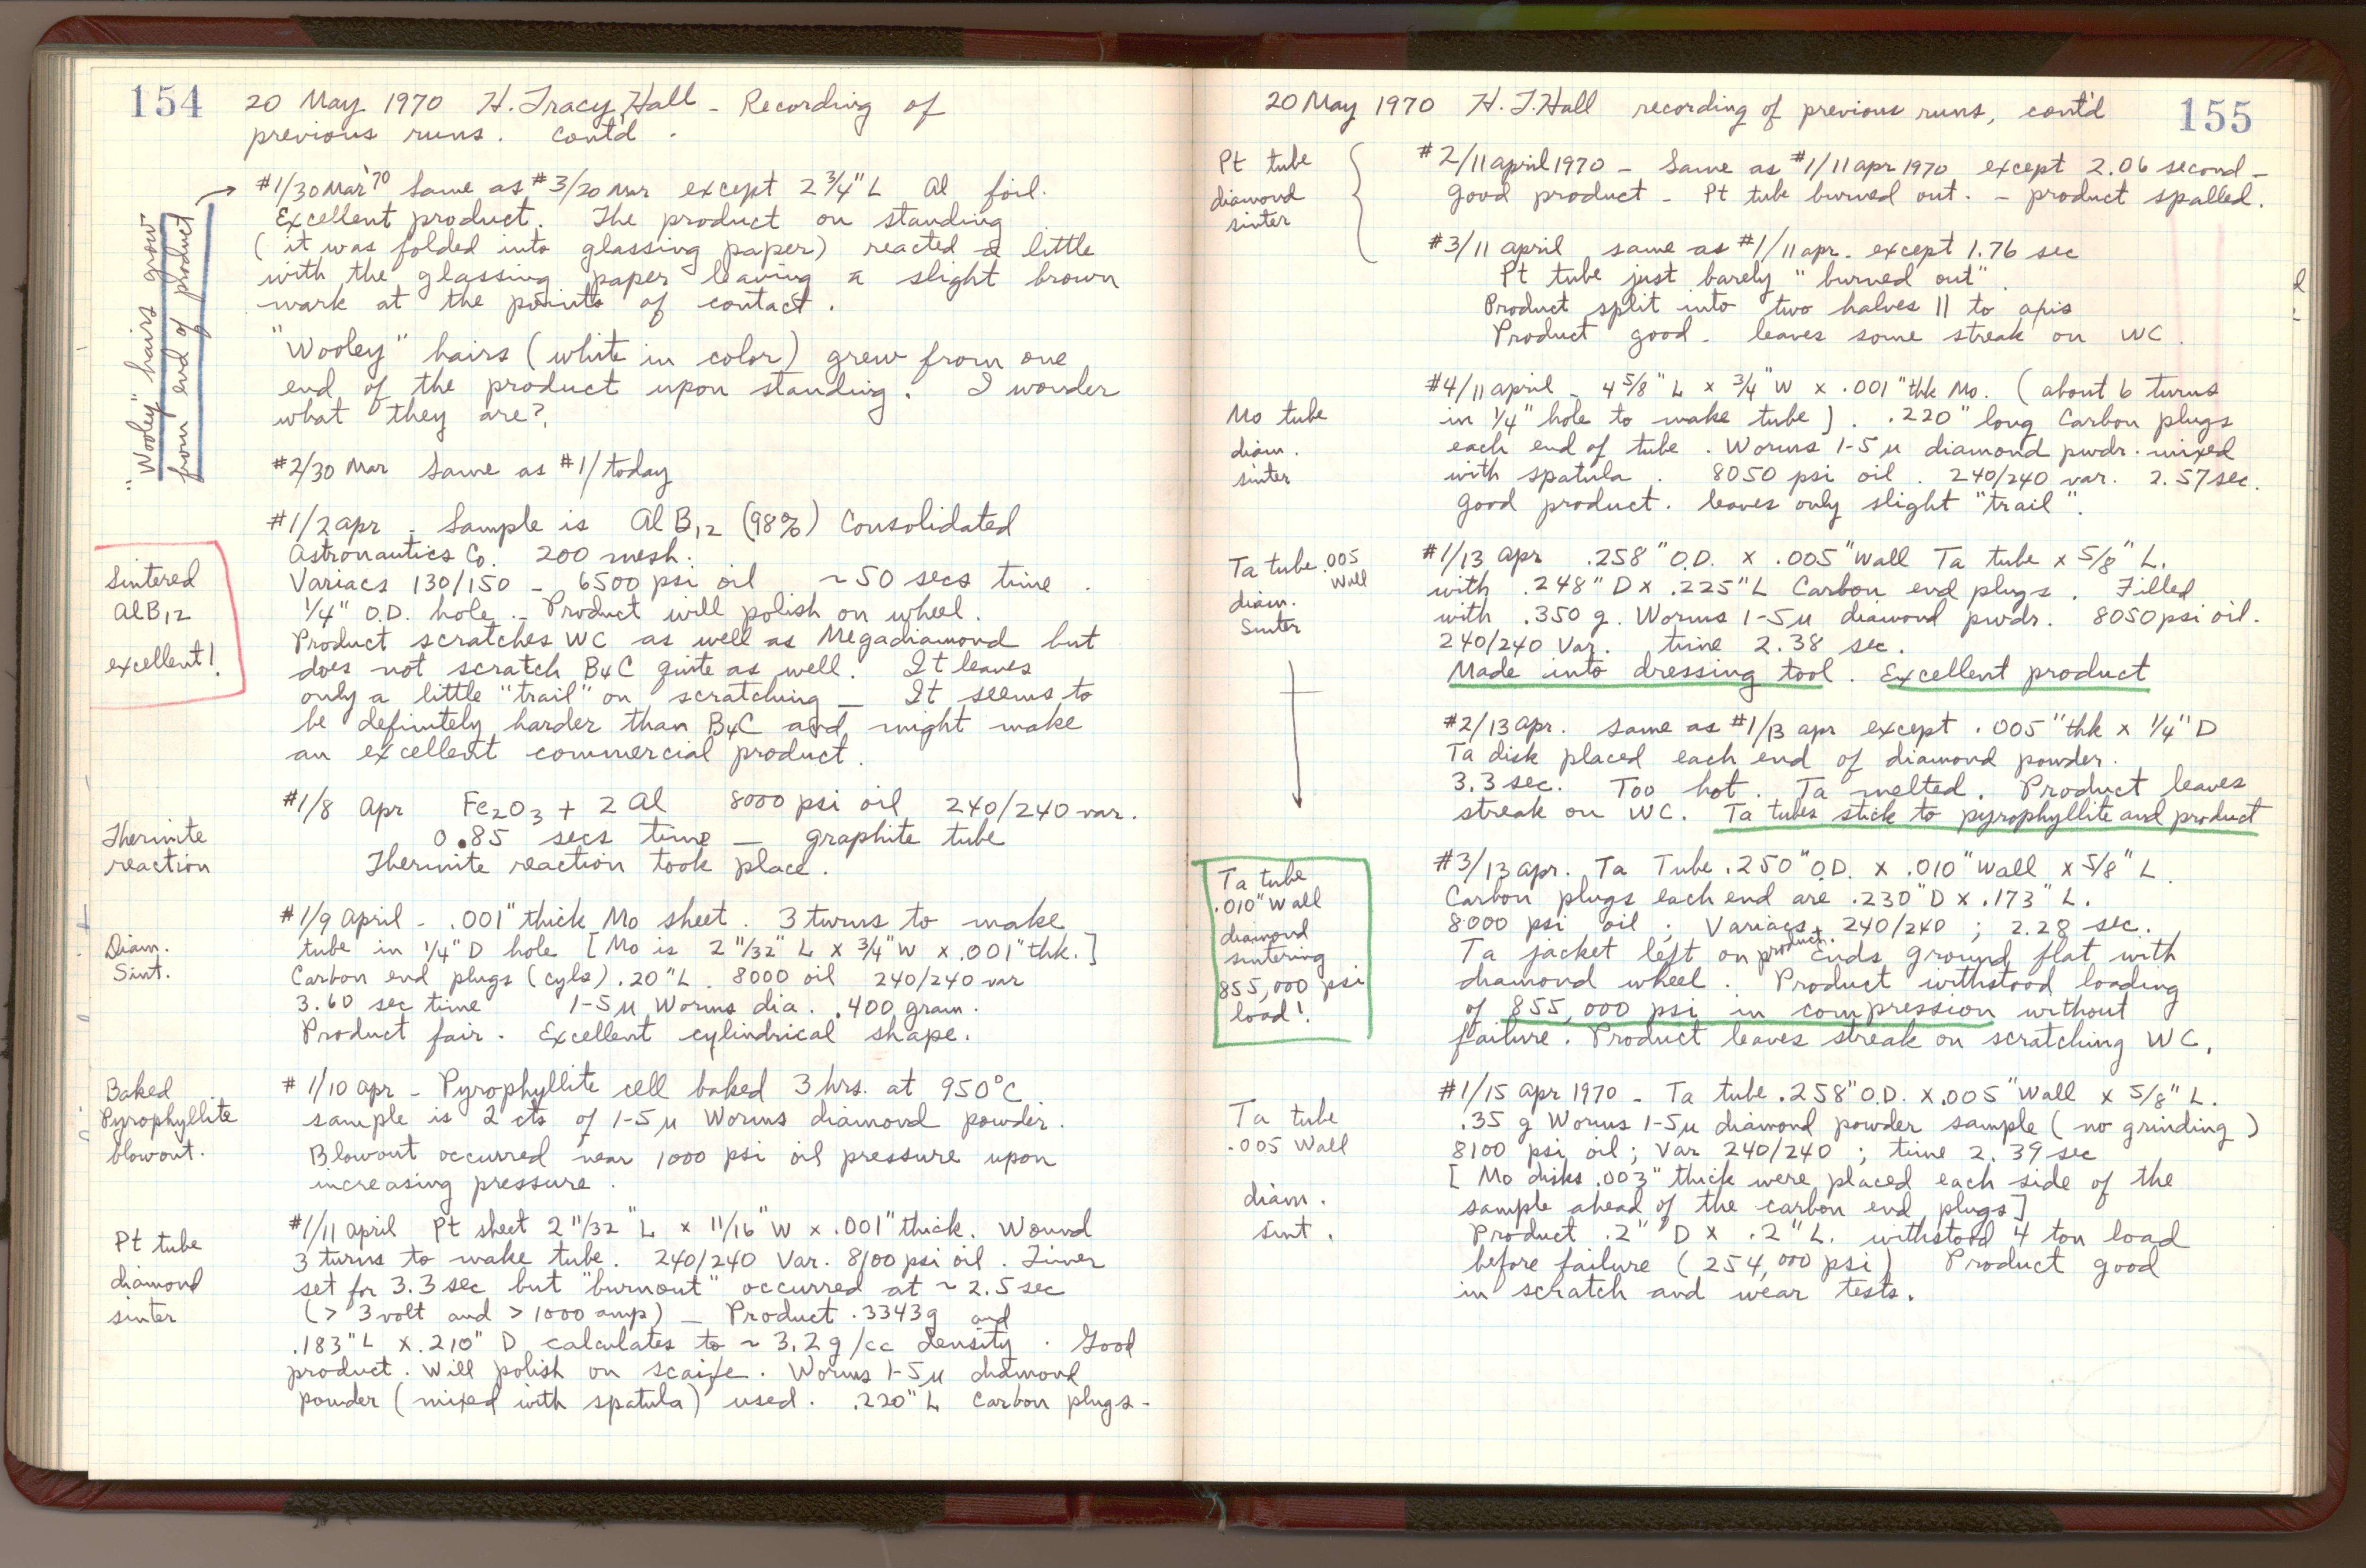 154
20 May 1970 H. Tracy Hall - Recording of
previous runs. Cont'd.
"Wooley" hairs grow
from end of product
#1/30 Mar '70 Same as #3/20 Mar except 2 3/4" L Al foil.
Excellent product. The product on standing
(it was folded into glassing paper) reacted a little
with the glassing paper leaving a slight brown
mark at the points of contact.
"Wooley" hairs (white in color) grew from one
end of the product upon standing. I wonder
what they are?
#2/30 Mar Same as #1/today
Sintered
AlB12
excellent!
#1/2 apr - Sample is AlB12 (98%) Consolidated
Astronautics Co. 200 mesh.
Variacs 130/150 - 6500 psi oil ~50 secs time.
1/4" O.D. hole - Product will polish on wheel.
Product scratches WC as well as Megadiamond but
does not scratch B4C quite as well. It leaves
only a little "trail" on scratching - It seems to
be definitely harder than B4C and might make
an excellent commercial product.
Thermite
reaction
#1/8 Apr Fe2O3 + 2 Al 8000 psi oil 240/240 var.
0.85 secs time - graphite tube
Thermite reaction took place.
Diam.
Sint.
#1/9 April - .001" thick Mo sheet. 3 turns to make
tube in 1/4" D hole [Mo is 2 11/32" L x 3/4" W x .001" thk.]
Carbon end plugs (cyls) .20" L. 8000 oil 240/240 var
3.60 sec time 1-5 µ Worms dia. .400 gram.
Product fair. Excellent cylindrical shape.
Baked
Pyrophyllite
blowout.
#1/10 apr - Pyrophyllite cell baked 3 hrs. at 950°C
sample is 2 cts of 1-5 µ Worms diamond powder.
Blowout occurred near 1000 psi oil pressure upon
increasing pressure.
Pt tube
diamond
sinter
#1/11 april Pt sheet 2 11/32" L x 11/16" W x .001" thick. Wound
3 turns to make tube. 240/240 Var. 8100 psi oil. Timer
set for 3.3 sec but "burnout" occurred at ~2.5 sec
(> 3 volt and > 1000 amp) - Product .3343g and
.183" L x .210" D calculates to ~ 3.2 g/cc density. Good
product. Will polish on scaife. Worms 1-5 µ diamond
powder (mixed with spatula) used. .220" L Carbon plugs-
20 May 1970 H. T. Hall recording of previous runs, cont'd
155
Pt tube
diamond
sinter
#2/11 april 1970 - Same as #1/11 apr 1970 except 2.06 second -
good product - Pt tube burned out. - product spalled.
#3/11 april same as #1/11 apr. except 1.76 sec
Pt tube just barely "burned out".
Product split into two halves || to axis
Product good. leaves some streak on WC.
Mo tube
diam.
sinter
#4/11 april - 4 5/8" L x 3/4" W x .001" thk Mo. (about 6 turns
in 1/4" hole to make tube). .220" long Carbon plugs
each end of tube. Worms 1-5 µ diamond pwdr. mixed
with spatula. 8050 psi oil. 240/240 var. 2.57 sec.
Good product. leaves only slight "trail".
Ta tube .005
Wall
diam.
Sinter
#1/13 apr .258" O.D. x .005" Wall Ta tube x 5/8" L.
with .248" D x .225" L Carbon end plugs. Filled
with .350 g. Worms 1-5 µ diamond pwdr. 8050 psi oil.
240/240 Var. time 2.38 sec.
Made into dressing tool. Excellent product
#2/13 apr. same as #1/13 apr except .005" thk x 1/4" D
Ta disk placed each end of diamond powder.
3.3 sec. Too hot. Ta melted. Product leaves
streak on WC. Ta tubes stick to pyrophyllite and product
Ta tube
.010" Wall
diamond
sintering
855,000 psi
load!
#3/13 apr. Ta Tube .250" O.D. x .010" Wall x 5/8" L.
Carbon plugs each end are .230" D x .173" L.
8000 psi oil; Variacs 240/240; 2.28 sec.
Ta jacket left on product. Ends ground flat with
diamond wheel. Product withstood loading
of 855,000 psi in compression without
failure. Product leaves streak on scratching WC.
Ta tube
.005 Wall
diam.
sint.
#1/15 apr 1970 - Ta tube .258" O.D. x .005" Wall x 5/8" L.
.35 g Worms 1-5µ diamond powder sample (no grinding)
8100 psi oil; Var 240/240; time 2.39 sec
[Mo disks .003" thick were placed each side of the
sample ahead of the carbon end plugs]
Product .2" D x .2" L. withstood 4 ton load
before failure (254,000 psi) Product good
in scratch and wear tests.